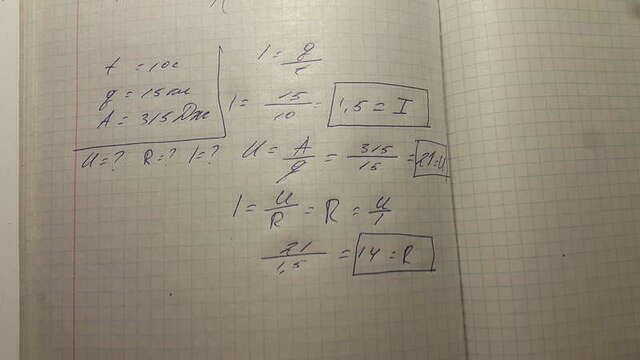 t = 10с
q = 15кл
A = 315Дж
U = ? R = ? I = ?
I = q/t
I = 15/10 = 1,5 = I
U = A/q = 315/15 = 21 = U
I = U/R = R = U/I
21/1,5 = 14 = R